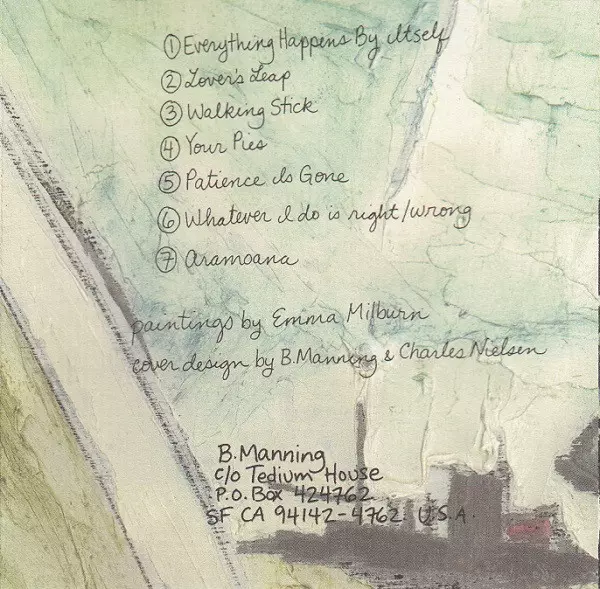 ① Everything Happens By Itself
② Lover's Leap
③ Walking Stick
④ Your Pies
⑤ Patience Is Gone
⑥ Whatever I do is right/wrong
⑦ Aramoana
paintings by Emma Milburn
cover design by B. Manning & Charles Nielsen
B. Manning
c/o Tedium House
P.O. Box 424762
SF CA 94142-4762 U.S.A.